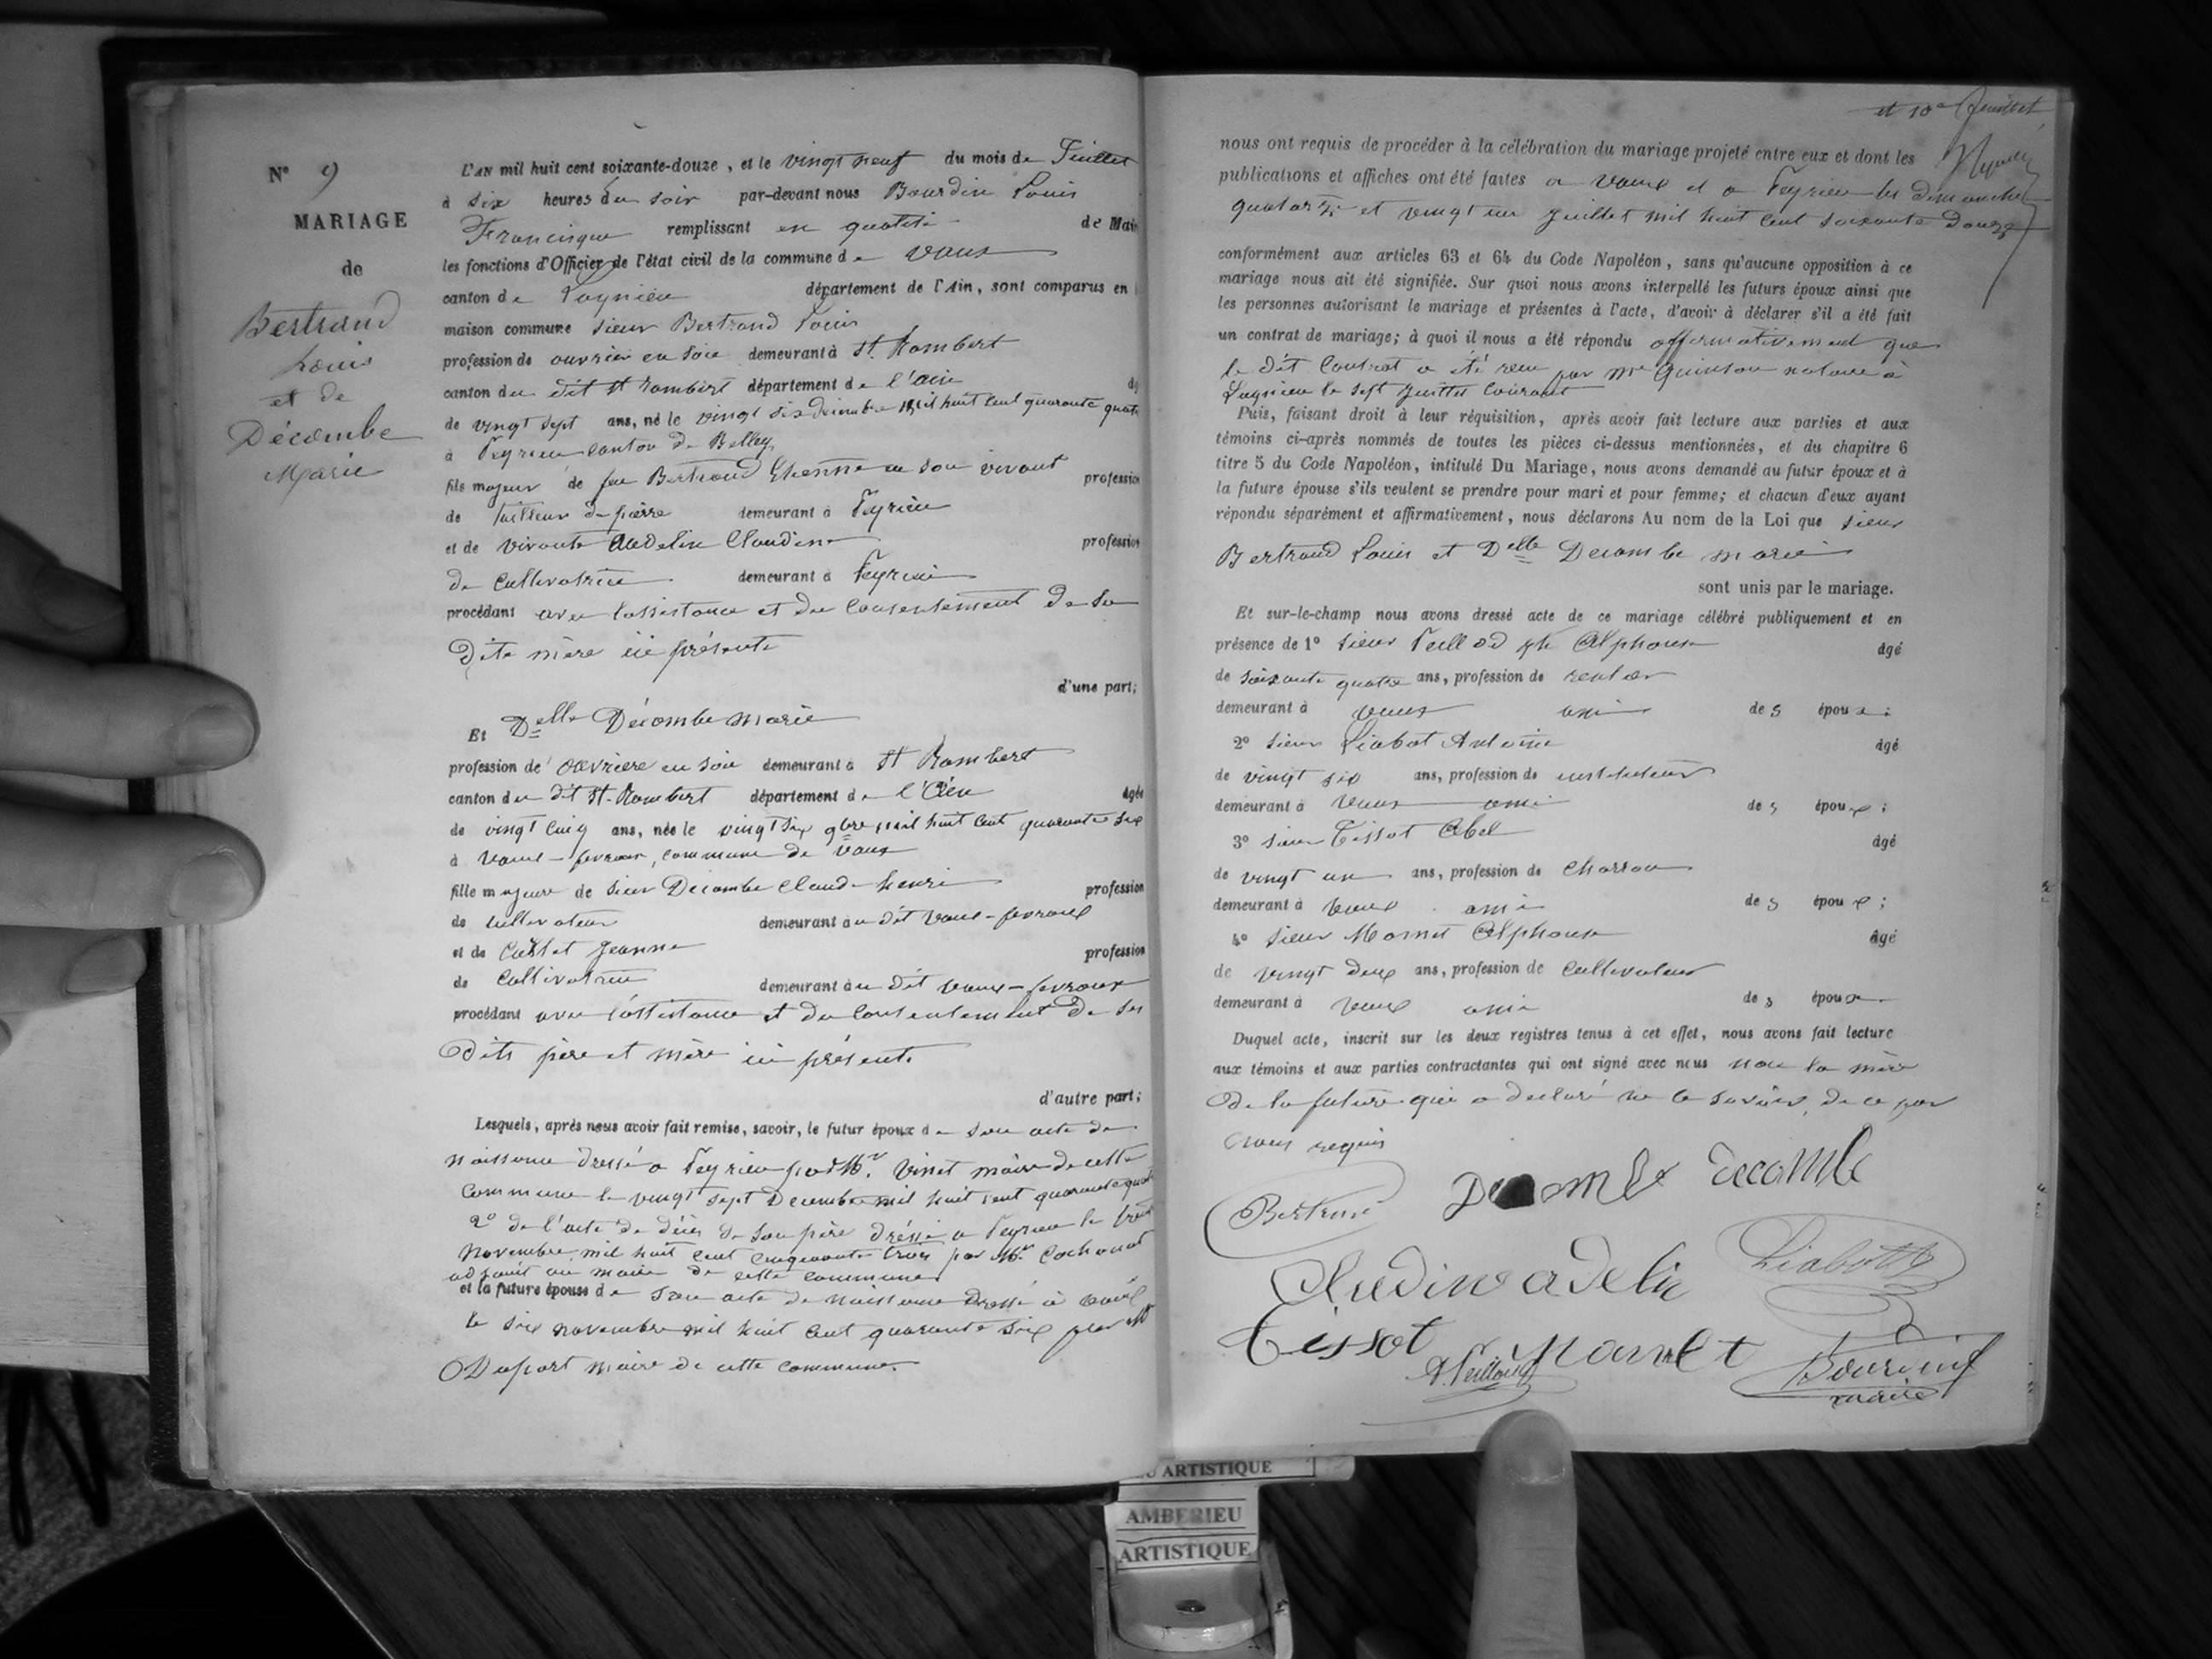 N° 9
MARIAGE
de
Bertrand
Louis
et de
Décombe
Marie
L'AN mil huit cent soixante-douze, et le vingt neuf du mois de Juillet
à six heures du soir par-devant nous Bourdin Louis
Francisque remplissant en qualité de Mai
les fonctions d'Officier de l'état civil de la commune de Vaux
canton de Lagnieu département de l'Ain, sont comparus en
maison commune sieur Bertrand Louis
profession de ouvrier en soie demeurant à St Rambert
canton du dit St Rambert département de l'ain
de vingt sept ans, né le vingt six décembre mil huit cent quarante quat
à Peyrieu canton de Belley
fils majeur de feu Bertrand Etienne en son vivant profession
de tailleur de pierre demeurant à Peyrieu
et de vivante Adelin Claudine profession
de cultivatrice demeurant à Peyrieu
procédant avec l'assistance et du consentement de sa
dite mère ici présente
d'une part;
Et Delle Décombe marie
profession de ouvrière en soie demeurant à St Rambert
canton du dit St-Rambert département de l'Ain âgée
de vingt cinq ans, née le vingt six 9bre mil huit cent quarante six
à Vaux-fevroux, commune de Vaux
fille majeure de sieur Décombe Claude henri profession
de cultivateur demeurant au dit Vaux-fevroux
et de Jeanne profession
de cultivatrice demeurant au dit Vaux-fevroux
procédant avec l'assistance et du consentement de ses
dits père et mère ici présents
d'autre part;
Lesquels, après nous avoir fait remise, savoir, le futur époux de son acte de
naissance dressé a Peyrieu par Mr. Vinet maire de cette
commune le vingt sept Décembre mil huit cent quarante quat
2° de l'acte de décès de son père dressé a Peyrieu le
novembre mil huit cent cinquante trois par Mr. Cochonat
adjoint au maire de cette commune
et la future épouse de son acte de naissance dressé à Vaux
le six novembre mil huit cent quarante six par Mr
Duport maire de cette commune.
et 10e feuillet
nous ont requis de procéder à la célébration du mariage projeté entre eux et dont les
publications et affiches ont été faites a Vaux et a Peyrieu les dimanches
quatorze et vingt un juillet mil huit cent soixante douze
conformément aux articles 63 et 64 du Code Napoléon, sans qu'aucune opposition à ce
mariage nous ait été signifiée. Sur quoi nous avons interpellé les futurs époux ainsi que
les personnes autorisant le mariage et présentes à l'acte, d'avoir à déclarer s'il a été fait
un contrat de mariage; à quoi il nous a été répondu affirmativement que
le dit contrat a été reçu par me Quinson notaire à
Lagnieu le sept juillet courant
Puis, faisant droit à leur réquisition, après avoir fait lecture aux parties et aux
témoins ci-après nommés de toutes les pièces ci-dessus mentionnées, et du chapitre 6
titre 5 du Code Napoléon, intitulé Du Mariage, nous avons demandé au futur époux et à
la future épouse s'ils veulent se prendre pour mari et pour femme; et chacun d'eux ayant
répondu séparément et affirmativement, nous déclarons Au nom de la Loi que sieur
Bertrand Louis et Delle Decombe marie
sont unis par le mariage.
Et sur-le-champ nous avons dressé acte de ce mariage célébré publiquement et en
présence de 1° sieur Alphonse âgé
de soixante quatre ans, profession de rentier
demeurant à Vaux ami des époux;
2° sieur Liabot Antoine âgé
de vingt six ans, profession de instituteur
demeurant à Vaux ami des époux;
3° sieur Tissot Abel âgé
de vingt un ans, profession de charron
demeurant à Vaux ami des époux;
4° sieur Mornet Alphonse âgé
de vingt deux ans, profession de cultivateur
demeurant à Vaux ami des époux
Duquel acte, inscrit sur les deux registres tenus à cet effet, nous avons fait lecture
aux témoins et aux parties contractantes qui ont signé avec nous non la mère
de la future qui a déclaré ne le savoir, de ce par
nous requis
Bertrand Decombe Decombe
Cludine adelin Liabot
Tissot Mornet Bourdin
maire
ARTISTIQUE
AMBERIEU
ARTISTIQUE